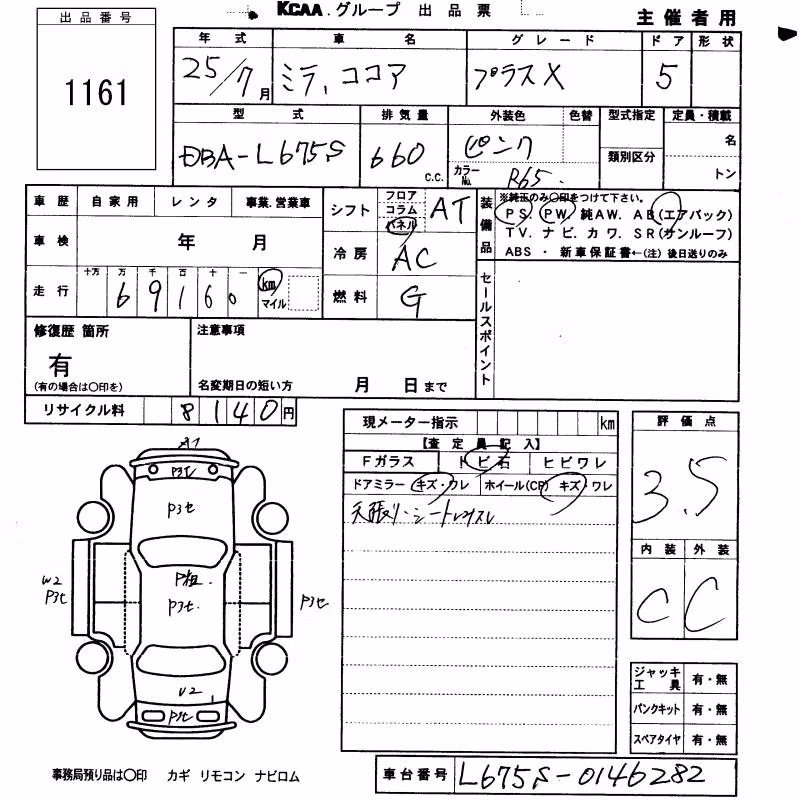 KCAA.グループ 出品票
主催者用
出品番号
1161
年式 車名 グレード ドア 形状
25/7月 ミラ,ココア プラスX 5
型式 排気量 外装色 色替 型式指定 定員・積載
DBA-L675S 660 c.c. ピンク 名
カラーNo. R65. 類別区分 トン
車歴 自家用 レンタ 事業.営業車
車検 年 月
走行 十万 万 千 百 十 一
69160 km マイル
シフト フロア コラム パネル AT
冷房 AC
燃料 G
装備品
※純正のみ〇印をつけて下さい。
PS PW 純AW. AB(エアバック)
TV. ナビ. カワ. SR(サンルーフ)
ABS ・ 新車保証書←(注) 後日送りのみ
セールスポイント
修復歴 箇所
有
(有の場合は〇印を)
注意事項
名変期日の短い方 月 日まで
リサイクル料 8140円
現メーター指示 km
【査定員記入】
Fガラス トビ石 ヒビワレ
ドアミラー キズ・ワレ ホイール(CP) キズ・ワレ
天張り・シート
評価点
3.5
内装 外装
C C
A1
P3セ
P3セ.
W2
P3セ
P3セ
U2
ジャッキ 工具 有・無
パンクキット 有・無
スペアタイヤ 有・無
事務局預り品は〇印 カギ リモコン ナビロム
車台番号 L675S-0146282